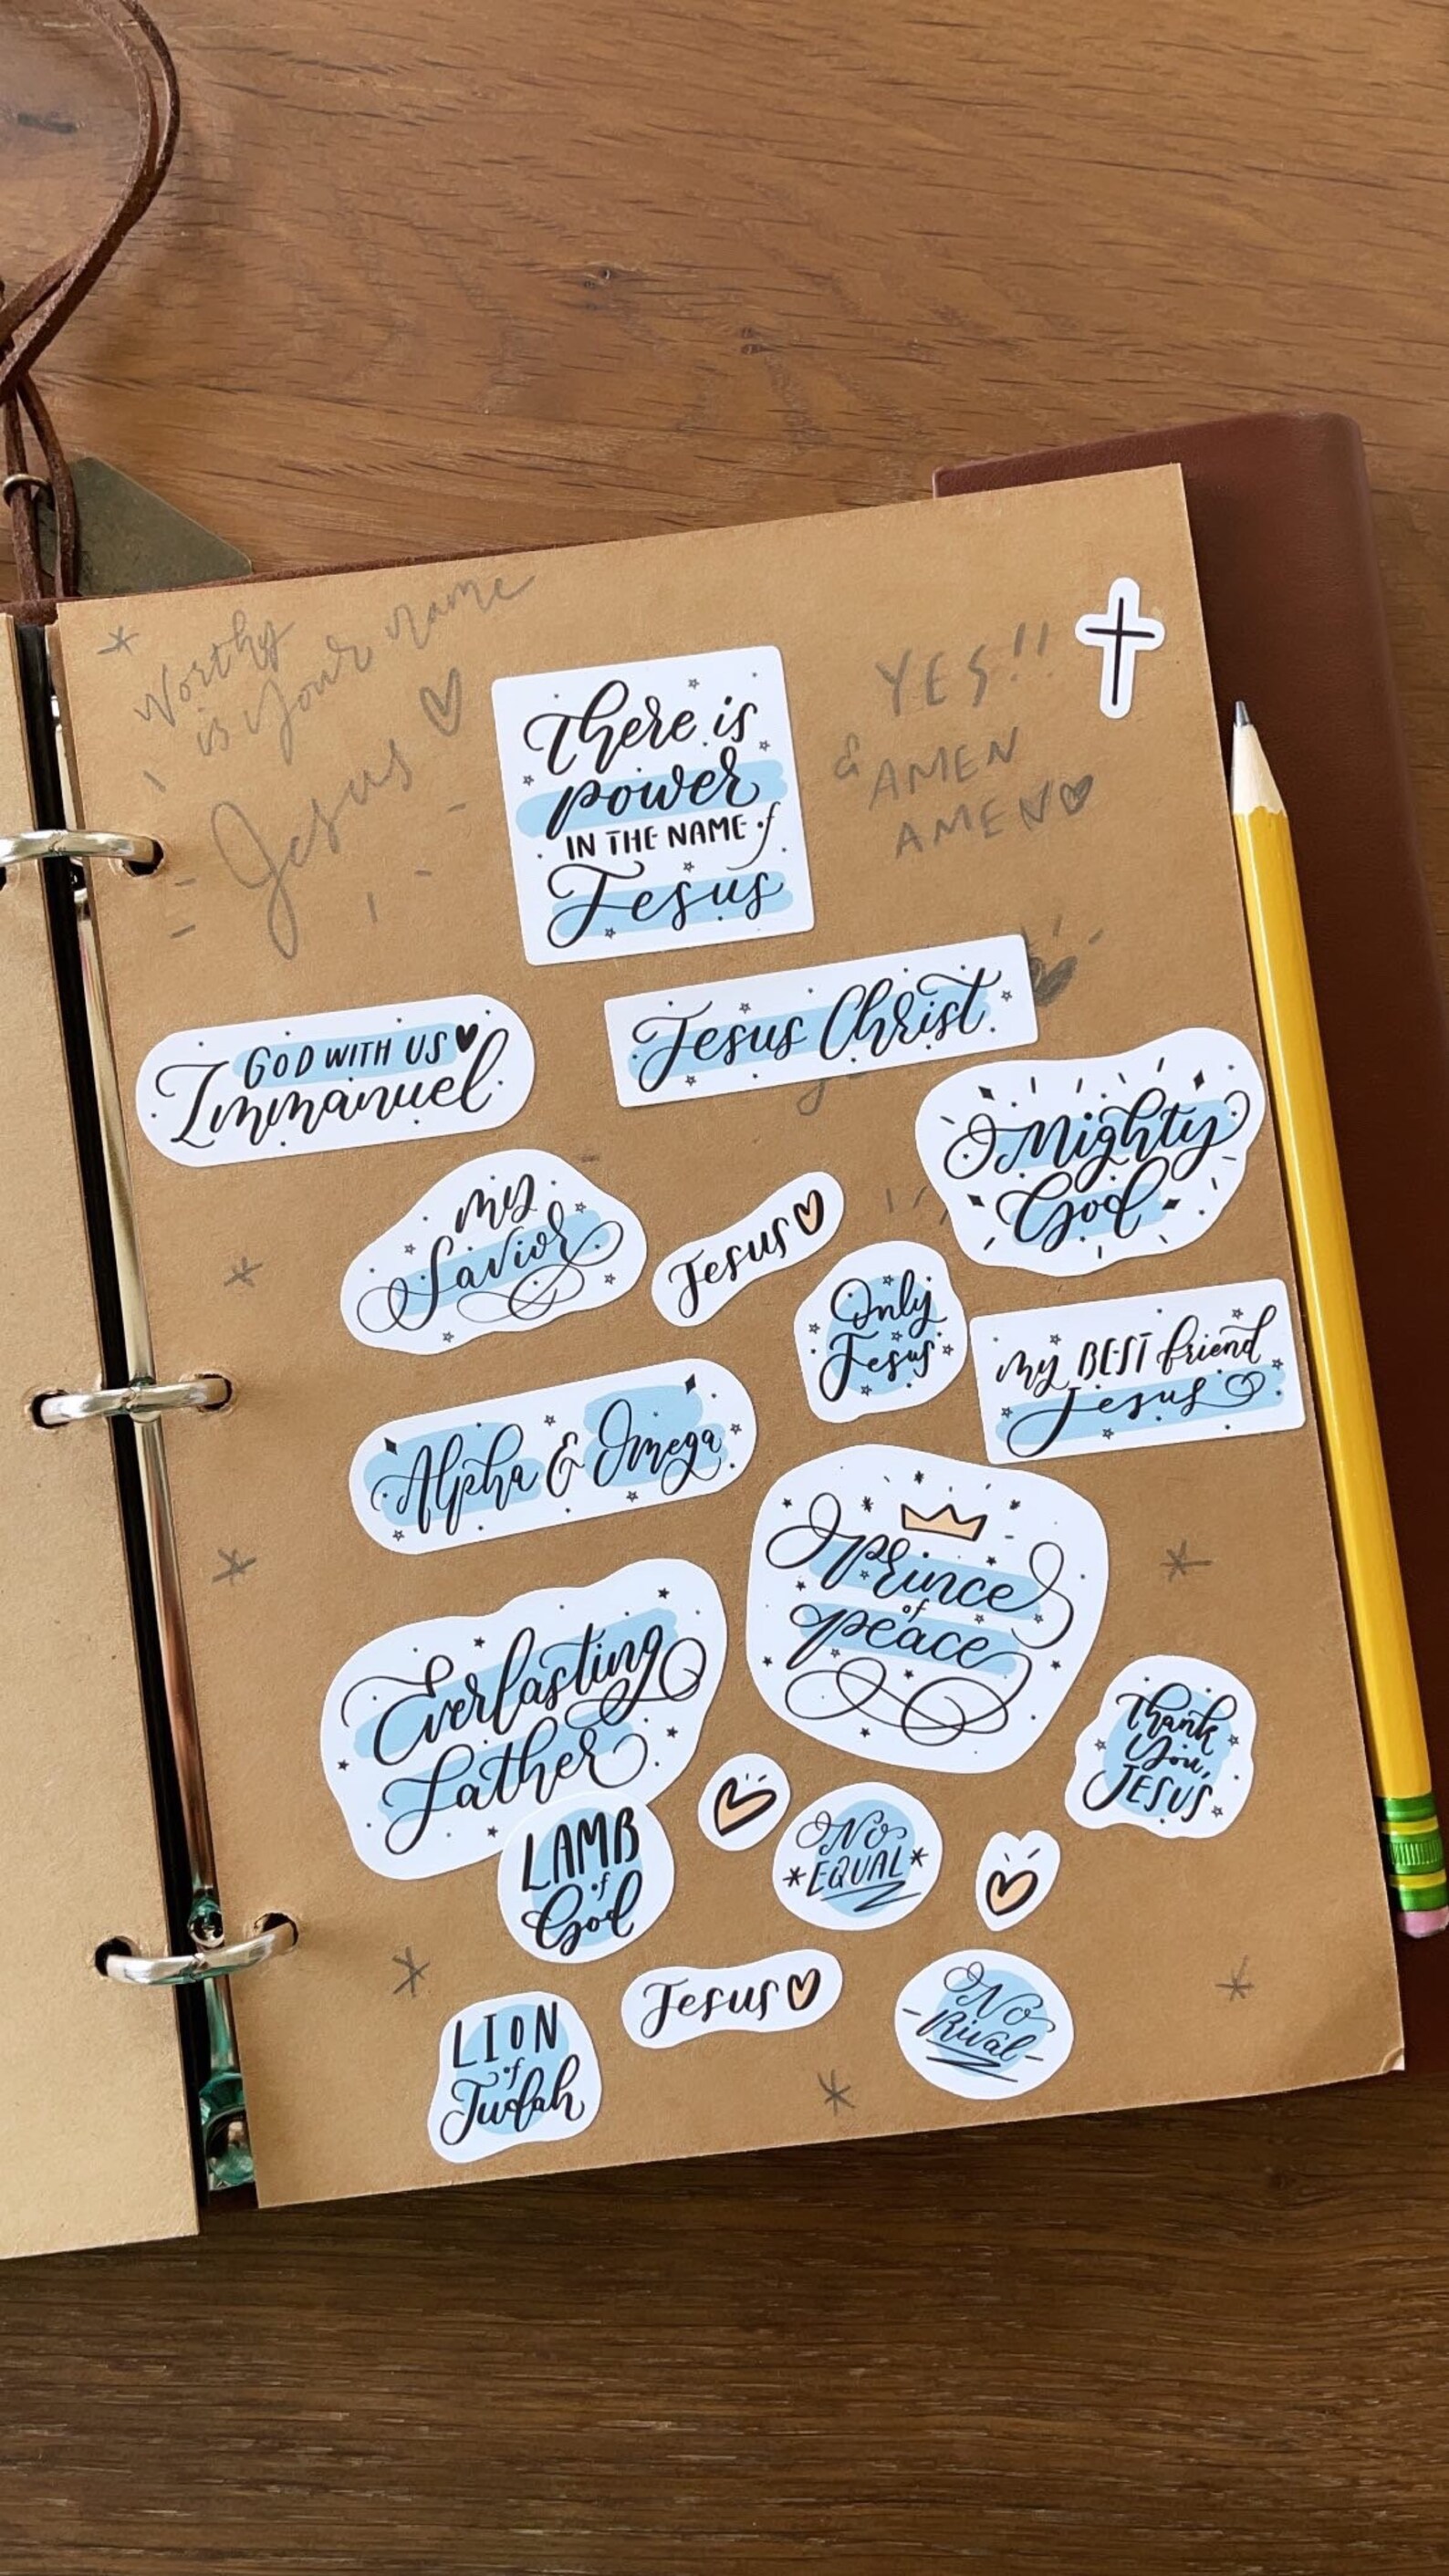 Worthy
is your name
Jesus
There is
power
IN THE NAME of
Jesus
YES!!
& AMEN
AMEN
GOD WITH US
Immanuel
Jesus Christ
Mighty
God
my
Savior
Jesus
Only
Jesus
my BEST friend
Jesus
Alpha & Omega
Prince
of
peace
Everlasting
Father
Thank
you,
JESUS
LAMB
of
God
NO
EQUAL
Jesus
NO
Rival
LION
of
Judah